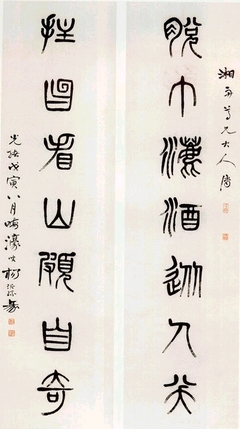 尊兄大人屬
脫巾漉酒從人笑
拄笏看山頗自奇
光緒戊寅八月晦濠叟楊沂孫